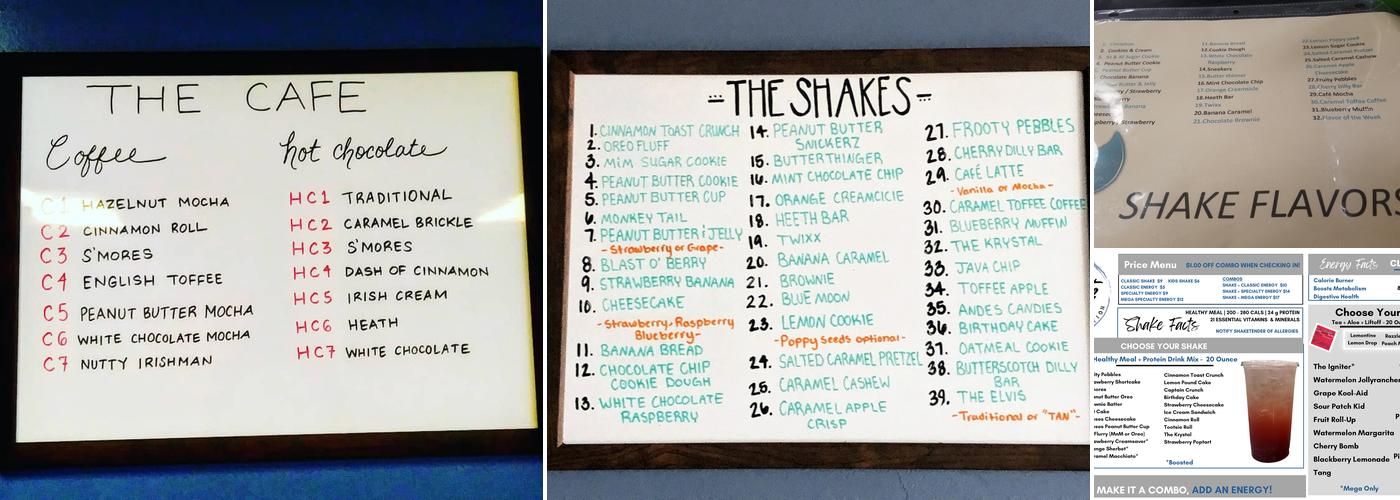 THE CAFE
Coffee
C1 HAZELNUT MOCHA
C2 CINNAMON ROLL
C3 S'MORES
C4 ENGLISH TOFFEE
C5 PEANUT BUTTER MOCHA
C6 WHITE CHOCOLATE MOCHA
C7 NUTTY IRISHMAN
hot chocolate
HC1 TRADITIONAL
HC2 CARAMEL BRICKLE
HC3 S'MORES
HC4 DASH OF CINNAMON
HC5 IRISH CREAM
HC6 HEATH
HC7 WHITE CHOCOLATE
THE SHAKES
1. CINNAMON TOAST CRUNCH
2. OREO FLUFF
3. MiM SUGAR COOKIE
4. PEANUT BUTTER COOKIE
5. PEANUT BUTTER CUP
6. MONKEY TAIL
7. PEANUT BUTTER i JELLY
- Strawberry or Grape-
8. BLAST O' BERRY
9. STRAWBERRY BANANA
10. CHEESECAKE
- Strawberry, Raspberry
Blueberry-
11. BANANA BREAD
12. CHOCOLATE CHIP
COOKIE DOUGH
13. WHITE CHOCOLATE
RASPBERRY
14. PEANUT BUTTER
SNICKERZ
15. BUTTERTHINGER
16. MINT CHOCOLATE CHIP
17. ORANGE CREAMCICIE
18. HEETH BAR
19. TWIXX
20. BANANA CARAMEL
21. BROWNIE
22. BLUE MOON
23. LEMON COOKIE
- Poppy Seeds optional-
24. SALTED CARAMEL PRETZEL
25. CARAMEL CASHEW
26. CARAMEL APPLE
CRISP
27. FROOTY PEBBLES
28. CHERRY DILLY BAR
29. CAFÉ LATTE
- Vanilla or Mocha-
30. CARAMEL TOFFEE COFFEE
31. BLUEBERRY MUFFIN
32. THE KRYSTAL
33. JAVA CHIP
34. TOFFEE APPLE
35. ANDES CANDIES
36. BIRTHDAY CAKE
37. OATMEAL COOKIE
38. BUTTERSCOTCH DILLY
BAR
39. THE ELVIS
- Traditional or "TAN"-
1. Cinnamon
Cookies & Cream
Peanut Butter Cookie
Peanut Butter Cup
Chocolate Banana
Butter & Jelly
/ Strawberry
Banana
/Strawberry
11.Banana Bread
12.Cookie Dough
13.White Chocolate
Raspberry
14.Sneekers
15.Butter thinner
16.Mint Chocolate Chip
17.Orange Creamsicle
18.Heeth Bar
19.Twixx
20.Banana Caramel
21.Chocolate Brownie
22.Lemon Poppy seed
23.Lemon Sugar Cookie
24.Salted Caramel Pretzel
25.Salted Caramel Cashew
26.Caramel Apple
Cheesecake
27.Fruity Pebbles
28.Cherry Dilly Bar
29.Café Mocha
30.Caramel Toffee Coffee
31.Blueberry Muffin
32.Flavor of the Week
SHAKE FLAVORS
Price Menu $1.00 OFF COMBO WHEN CHECKING IN!
CLASSIC SHAKE $9 KIDS SHAKE $6
CLASSIC ENERGY $5
SPECIALTY ENERGY $9
MEGA SPECIALTY ENERGY $12
COMBOS
SHAKE + CLASSIC ENERGY $10
SHAKE + SPECIALTY ENERGY $14
SHAKE + MEGA ENERGY $17
Shake Facts
HEALTHY MEAL | 200 - 280 CALS | 24 g PROTEIN
21 ESSENTIAL VITAMINS & MINERALS
NOTIFY SHAKETENDER OF ALLERGIES
CHOOSE YOUR SHAKE
Healthy Meal + Protein Drink Mix - 20 Ounce
Pebbles
Shortcake
Butter Cup
Batter
Cake
Cheesecake
Peanut Butter Cup
Flurry (MnM or Oreo)
Creamsaver*
Sherbet*
Macchiato*
Cinnamon Toast Crunch
Lemon Pound Cake
Captain Crunch
Birthday Cake
Strawberry Cheesecake
Ice Cream Sandwich
Cinnamon Roll
Tootsie Roll
The Krystal
Strawberry Poptart
*Boosted
MAKE IT A COMBO, ADD AN ENERGY!
Energy Facts
Calorie Burner
Boosts Metabolism
Digestive Health
Choose Your
Tea + Aloe + Liftoff - 20
Lemontine
Lemon Drop
The Igniter*
Watermelon Jollyrancher
Grape Kool-Aid
Sour Patch Kid
Fruit Roll-Up
Watermelon Margarita
Cherry Bomb
Blackberry Lemonade
Tang
*Mega Only